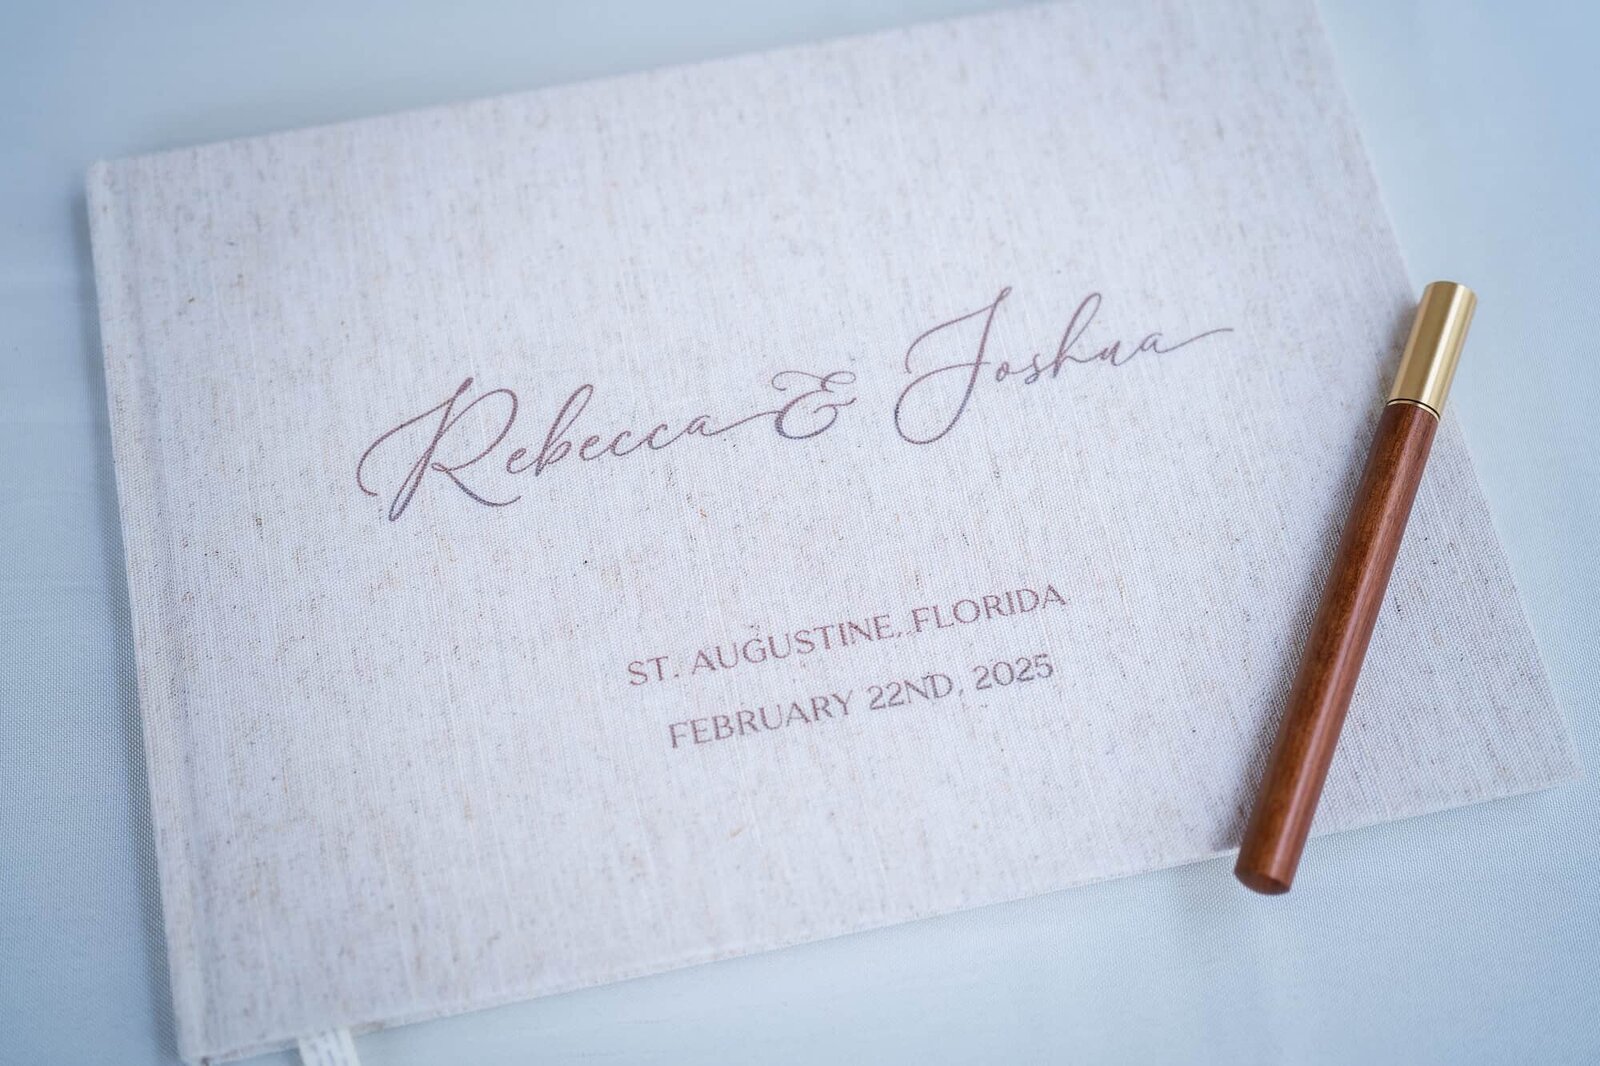 Rebecca & Joshua
ST. AUGUSTINE, FLORIDA
FEBRUARY 22ND, 2025